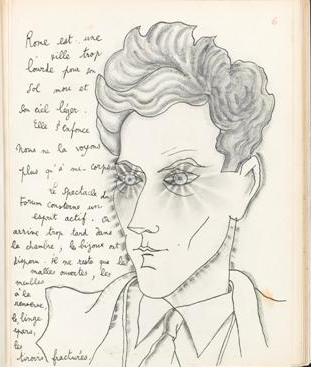 6
Rome est une
ville trop
lourde pour son
sol mou et
son ciel léger.
Elle s'enfonce
Nous ne la voyons
plus qu'à mi-corps
Le spectacle du
Forum consterne un
esprit actif. On
arrive trop tard dans
la chambre, les bijoux ont
disparu. Il ne reste que les
malles ouvertes, les
meubles
à la
renverse,
le linge
épars,
les
tiroirs fracturés,